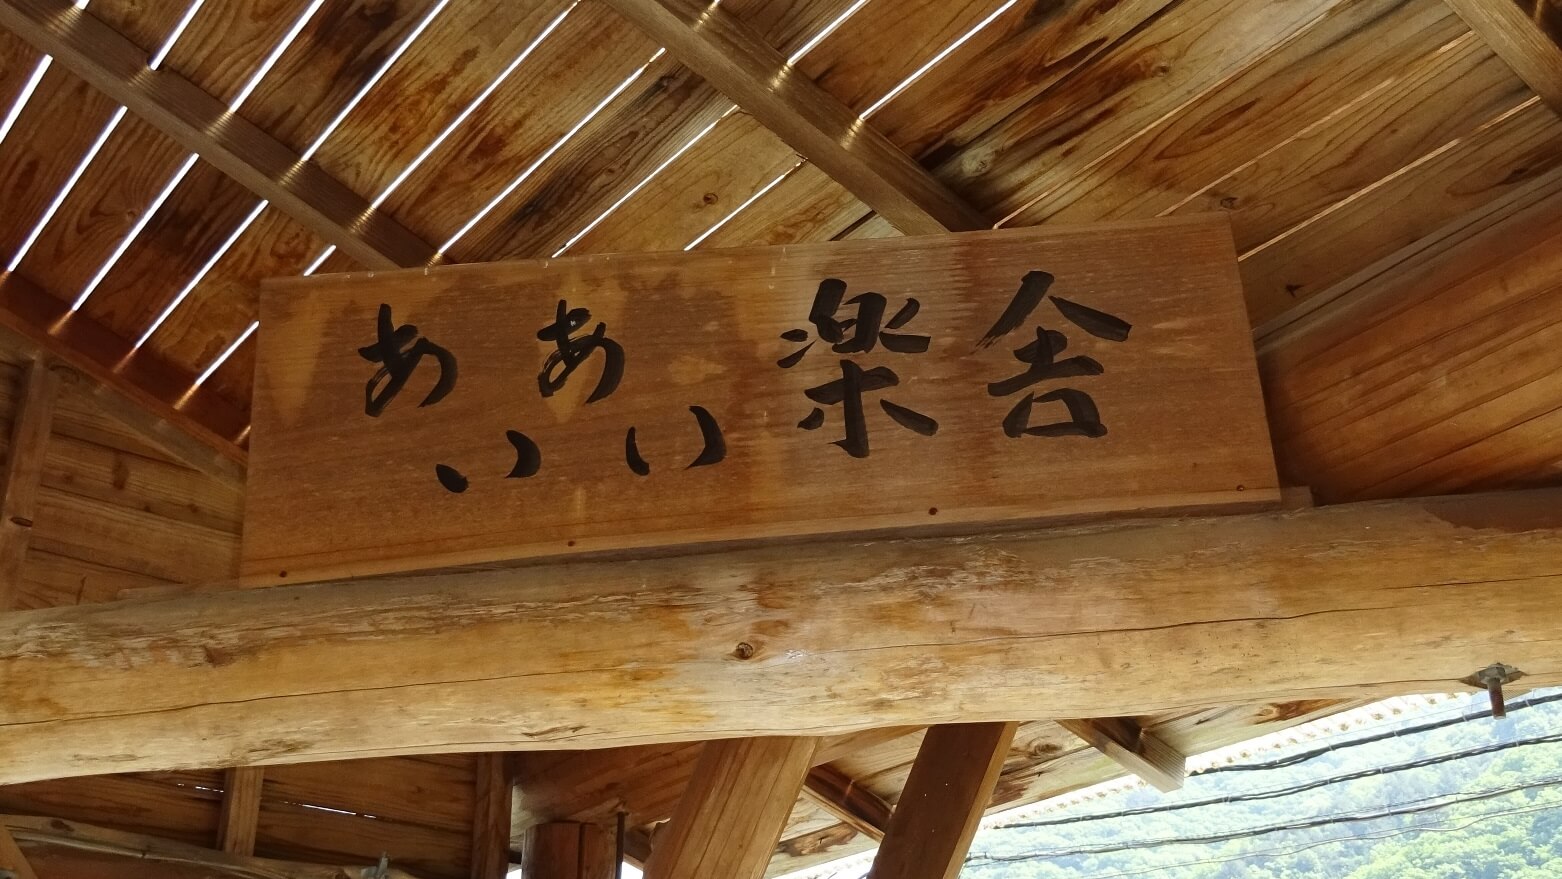 ああいい楽舎